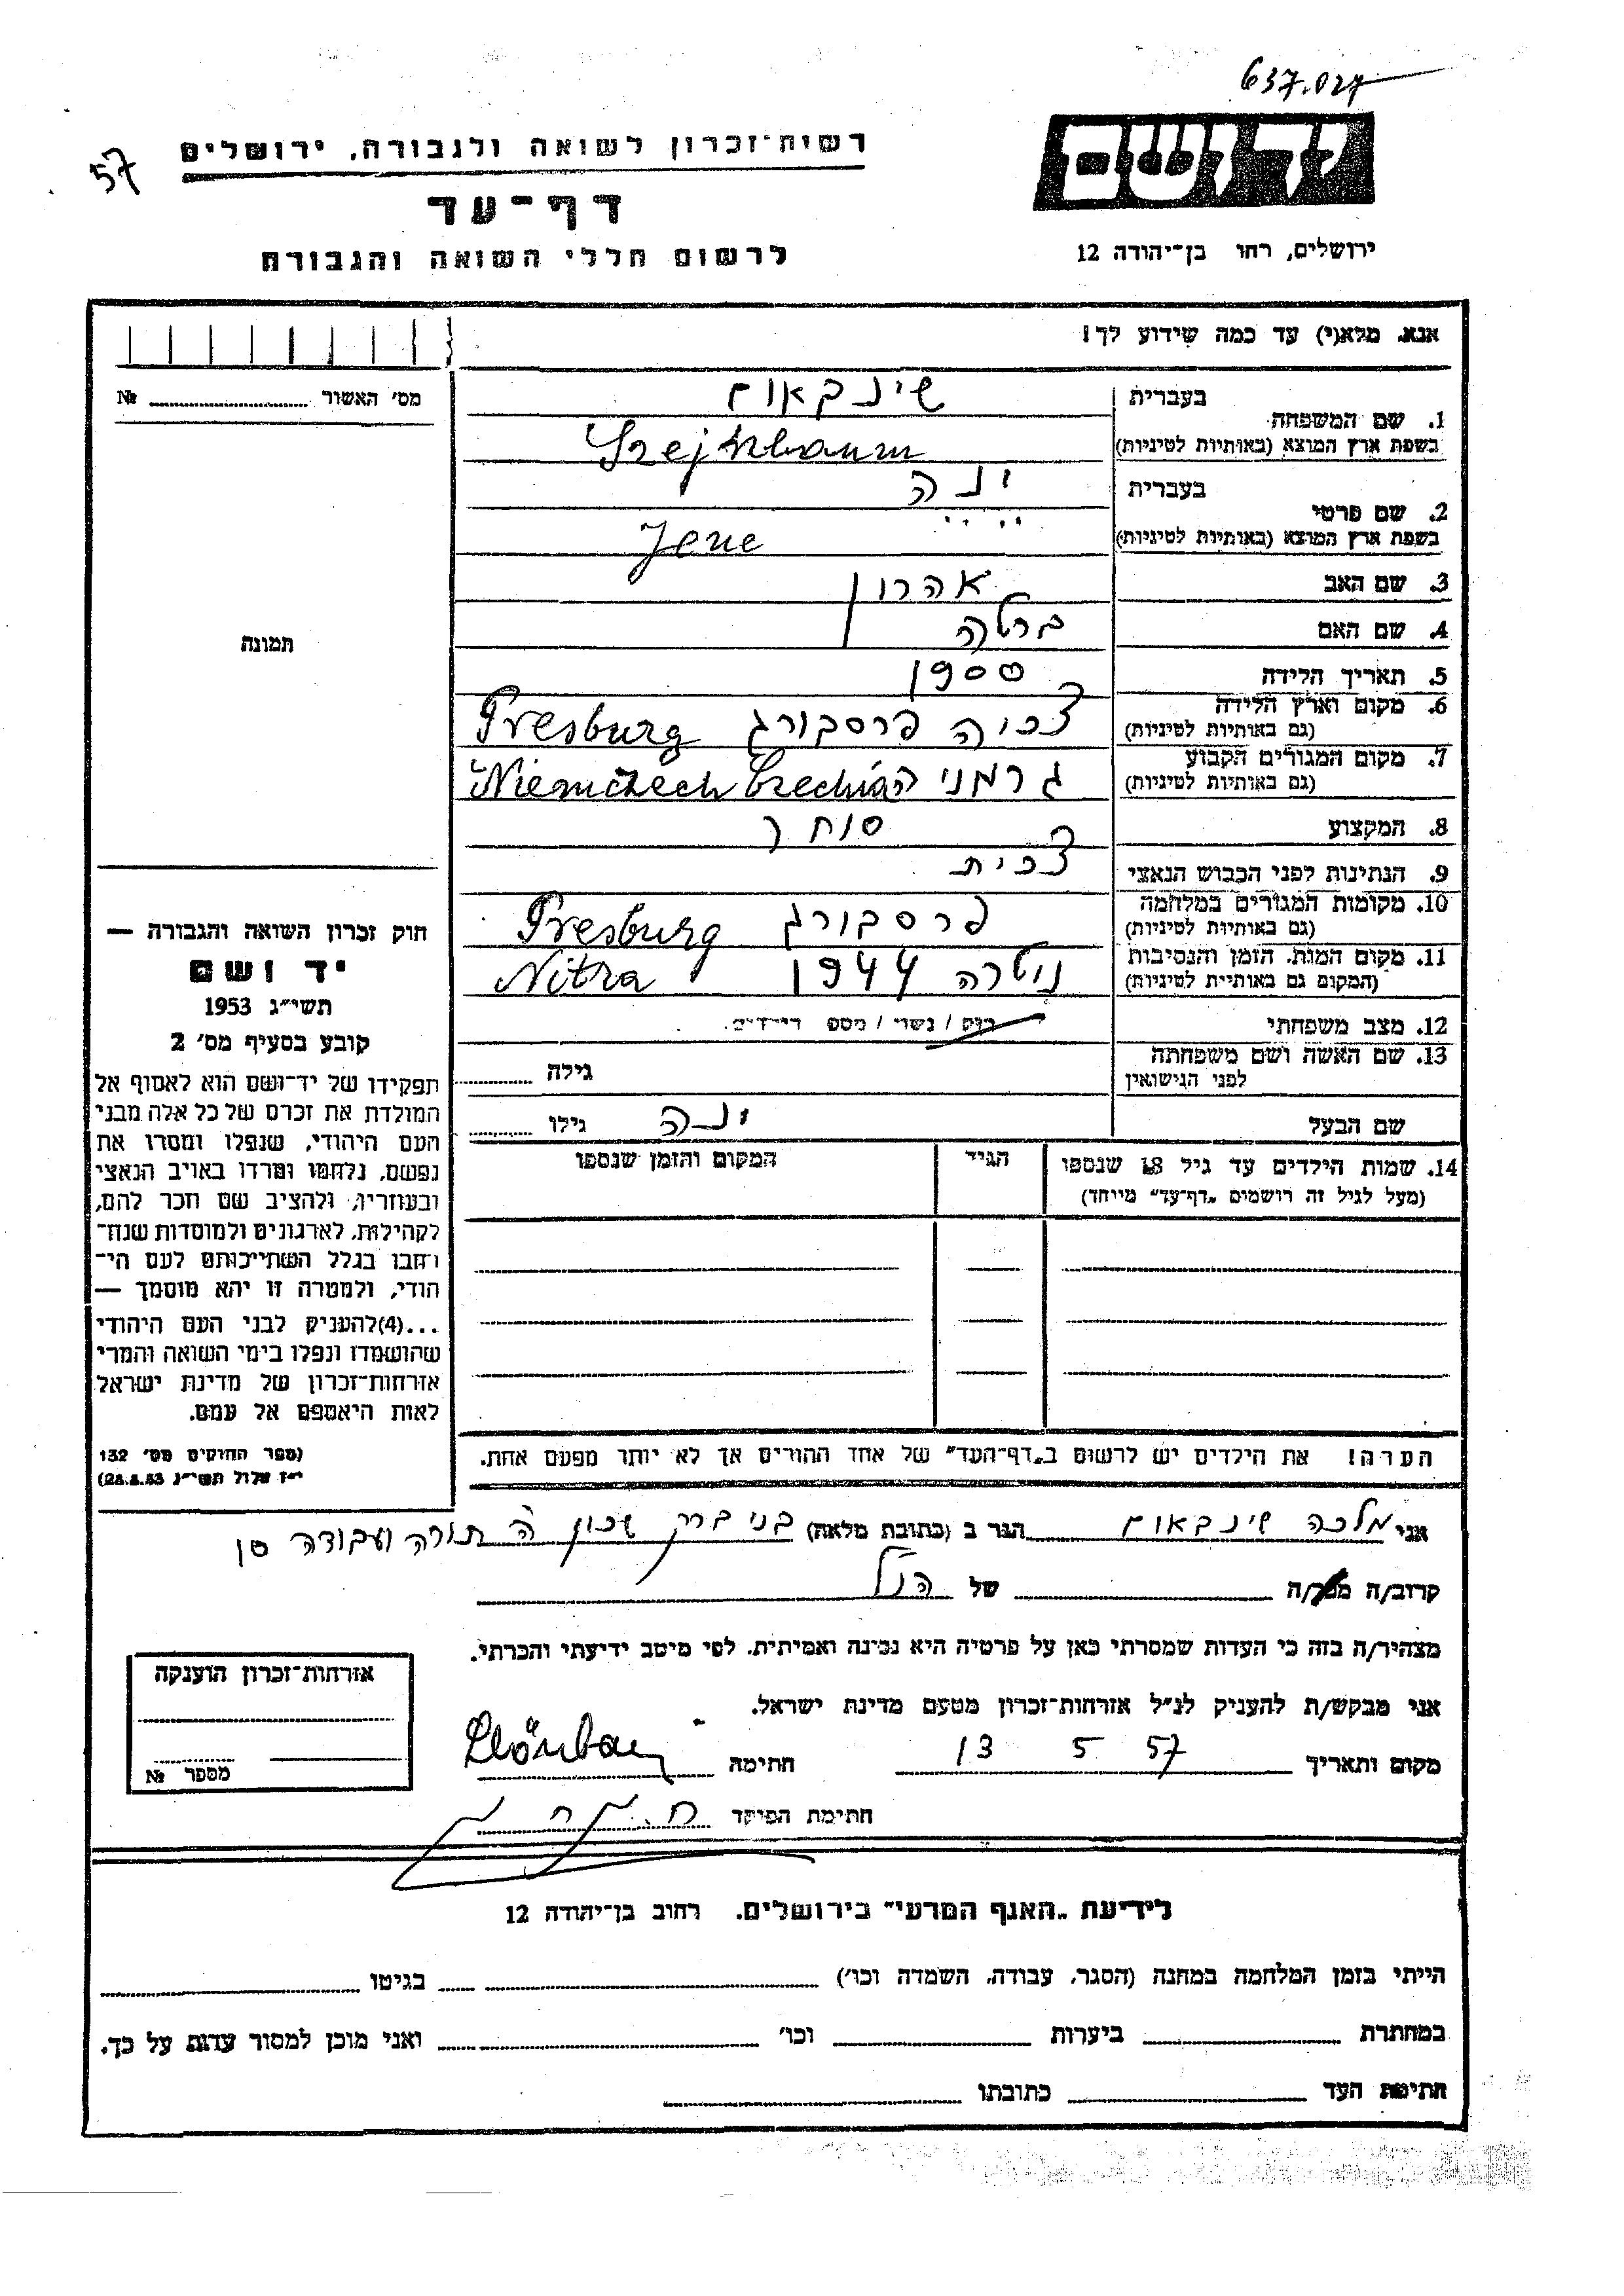 637.027
57
רשות־זכרון לשואה ולגבורה, ירושלים
יד ושם
דף־עד
ירושלים, רחו בן־יהודה 12
לרשום חללי השואה והגבורה
אנא, מלא(י) עד כמה שידוע לך!
מס׳ האשור № 
בעברית שינבאום
1. שם המשפחה
בשפת ארץ המוצא (באותיות לטיניות)
בעברית יונה
2. שם פרטי
בשפת ארץ המוצא (באותיות לטיניות) Jene
3. שם האב אהרון
4. שם האם ברטה
תמונה
5. תאריך הלידה 1900
6. מקום וארץ הלידה צכיה פרסבורג Presburg
(גם באותיות לטיניות)
7. מקום המגורים הקבוע גרמניה
(גם באותיות לטיניות)
8. המקצוע סוחר
9. הנתינות לפני הכבוש הנאצי צכית
10. מקומות המגורים במלחמה פרסבורג Presburg
(גם באותיות לטיניות)
11. מקום המות, הזמן והנסיבות ניטרה 1944 Nitra
(המקום גם באותיות לטיניות)
12. מצב משפחתי רוק / נשוי / מספר ילדים
13. שם האשה ושם משפחתה גילה
לפני הנישואין
שם הבעל יונה גילו
14. שמות הילדים עד גיל 18 שנספו הגיל המקום והזמן שנספו
(מעל לגיל זה רושמים „דף־עד” מייחד)
הערה! את הילדים יש לרשום ב„דף־העד” של אחד ההורים אך לא יותר מפעם אחת.
חוק זכרון השואה והגבורה —
יד ושם
תשי״ג 1953
קובע בסעיף מס׳ 2
תפקידו של יד־ושם הוא לאסוף אל
המולדת את זכרם של כל אלה מבני
העם היהודי, שנפלו ומסרו את
נפשם, נלחמו ומרדו באויב הנאצי
ובעוזריו, ולהציב שם וזכר להם,
לקהילות, לארגונים ולמוסדות שנח־
רבו בגלל השתייכותם לעם הי־
הודי, ולמטרה זו יהא מוסמך —
...(4)להעניק לבני העם היהודי
שהושמדו ונפלו בימי השואה והמרי
אזרחות־זכרון של מדינת ישראל
לאות היאספם אל עמם.
(ספר החוקים מס׳ 132
י״ז אלול תשי״ג 28.8.53)
אני מלכה שינבאום הגר ב (כתובת מלאה) בני ברק שכון ה תורה ועבודה
קרוב/ה מכר/ה של הנ״ל
מצהיר/ה בזה כי העדות שמסרתי כאן על פרטיה היא נכונה ואמיתית. לפי מיטב ידיעתי והכרתי.
אני מבקש/ת להעניק לנ״ל אזרחות־זכרון מטעם מדינת ישראל.
מקום ותאריך 13 5 57 חתימה
חתימת הפיקד
אזרחות־זכרון הוענקה
מספר №
לידיעת „האגף המדעי” בירושלים. רחוב בן־יהודה 12
הייתי בזמן המלחמה במחנה (הסגר, עבודה, השמדה וכו׳) בגיטו
במחתרת ביערות וכו׳ ואני מוכן למסור עדות על כך.
חתימת העד כתובתו